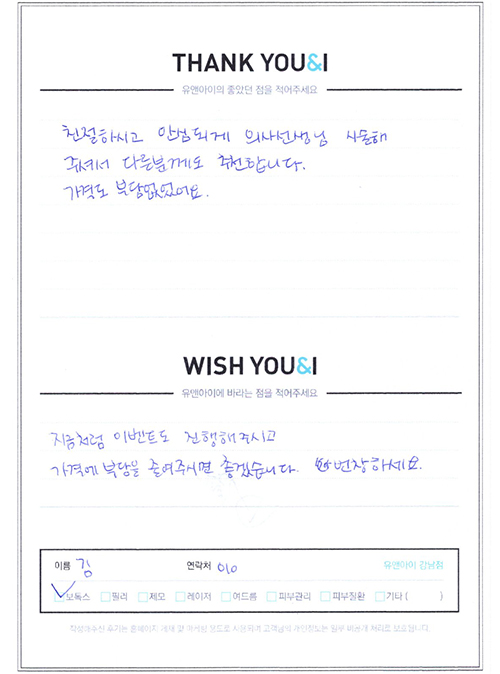 THANK YOU&I
유앤아이의 좋았던 점을 적어주세요
친절하시고 안심되게 의사선생님 시술해
주셔서 다른분께도 추천합니다.
가격도 부담없었어요.
WISH YOU&I
유앤아이에 바라는 점을 적어주세요
지금처럼 이벤트도 진행해주시고
가격에 부담을 줄여주시면 좋겠습니다. 번창하세요.
이름 김 연락처 010 유앤아이 강남점
보톡스 필러 제모 레이저 여드름 피부관리 피부질환 기타 ( )
작성해주신 후기는 홈페이지 게재 및 마케팅 용도로 사용되며 고객님의 개인정보는 일부 비공개 처리로 보호됩니다.